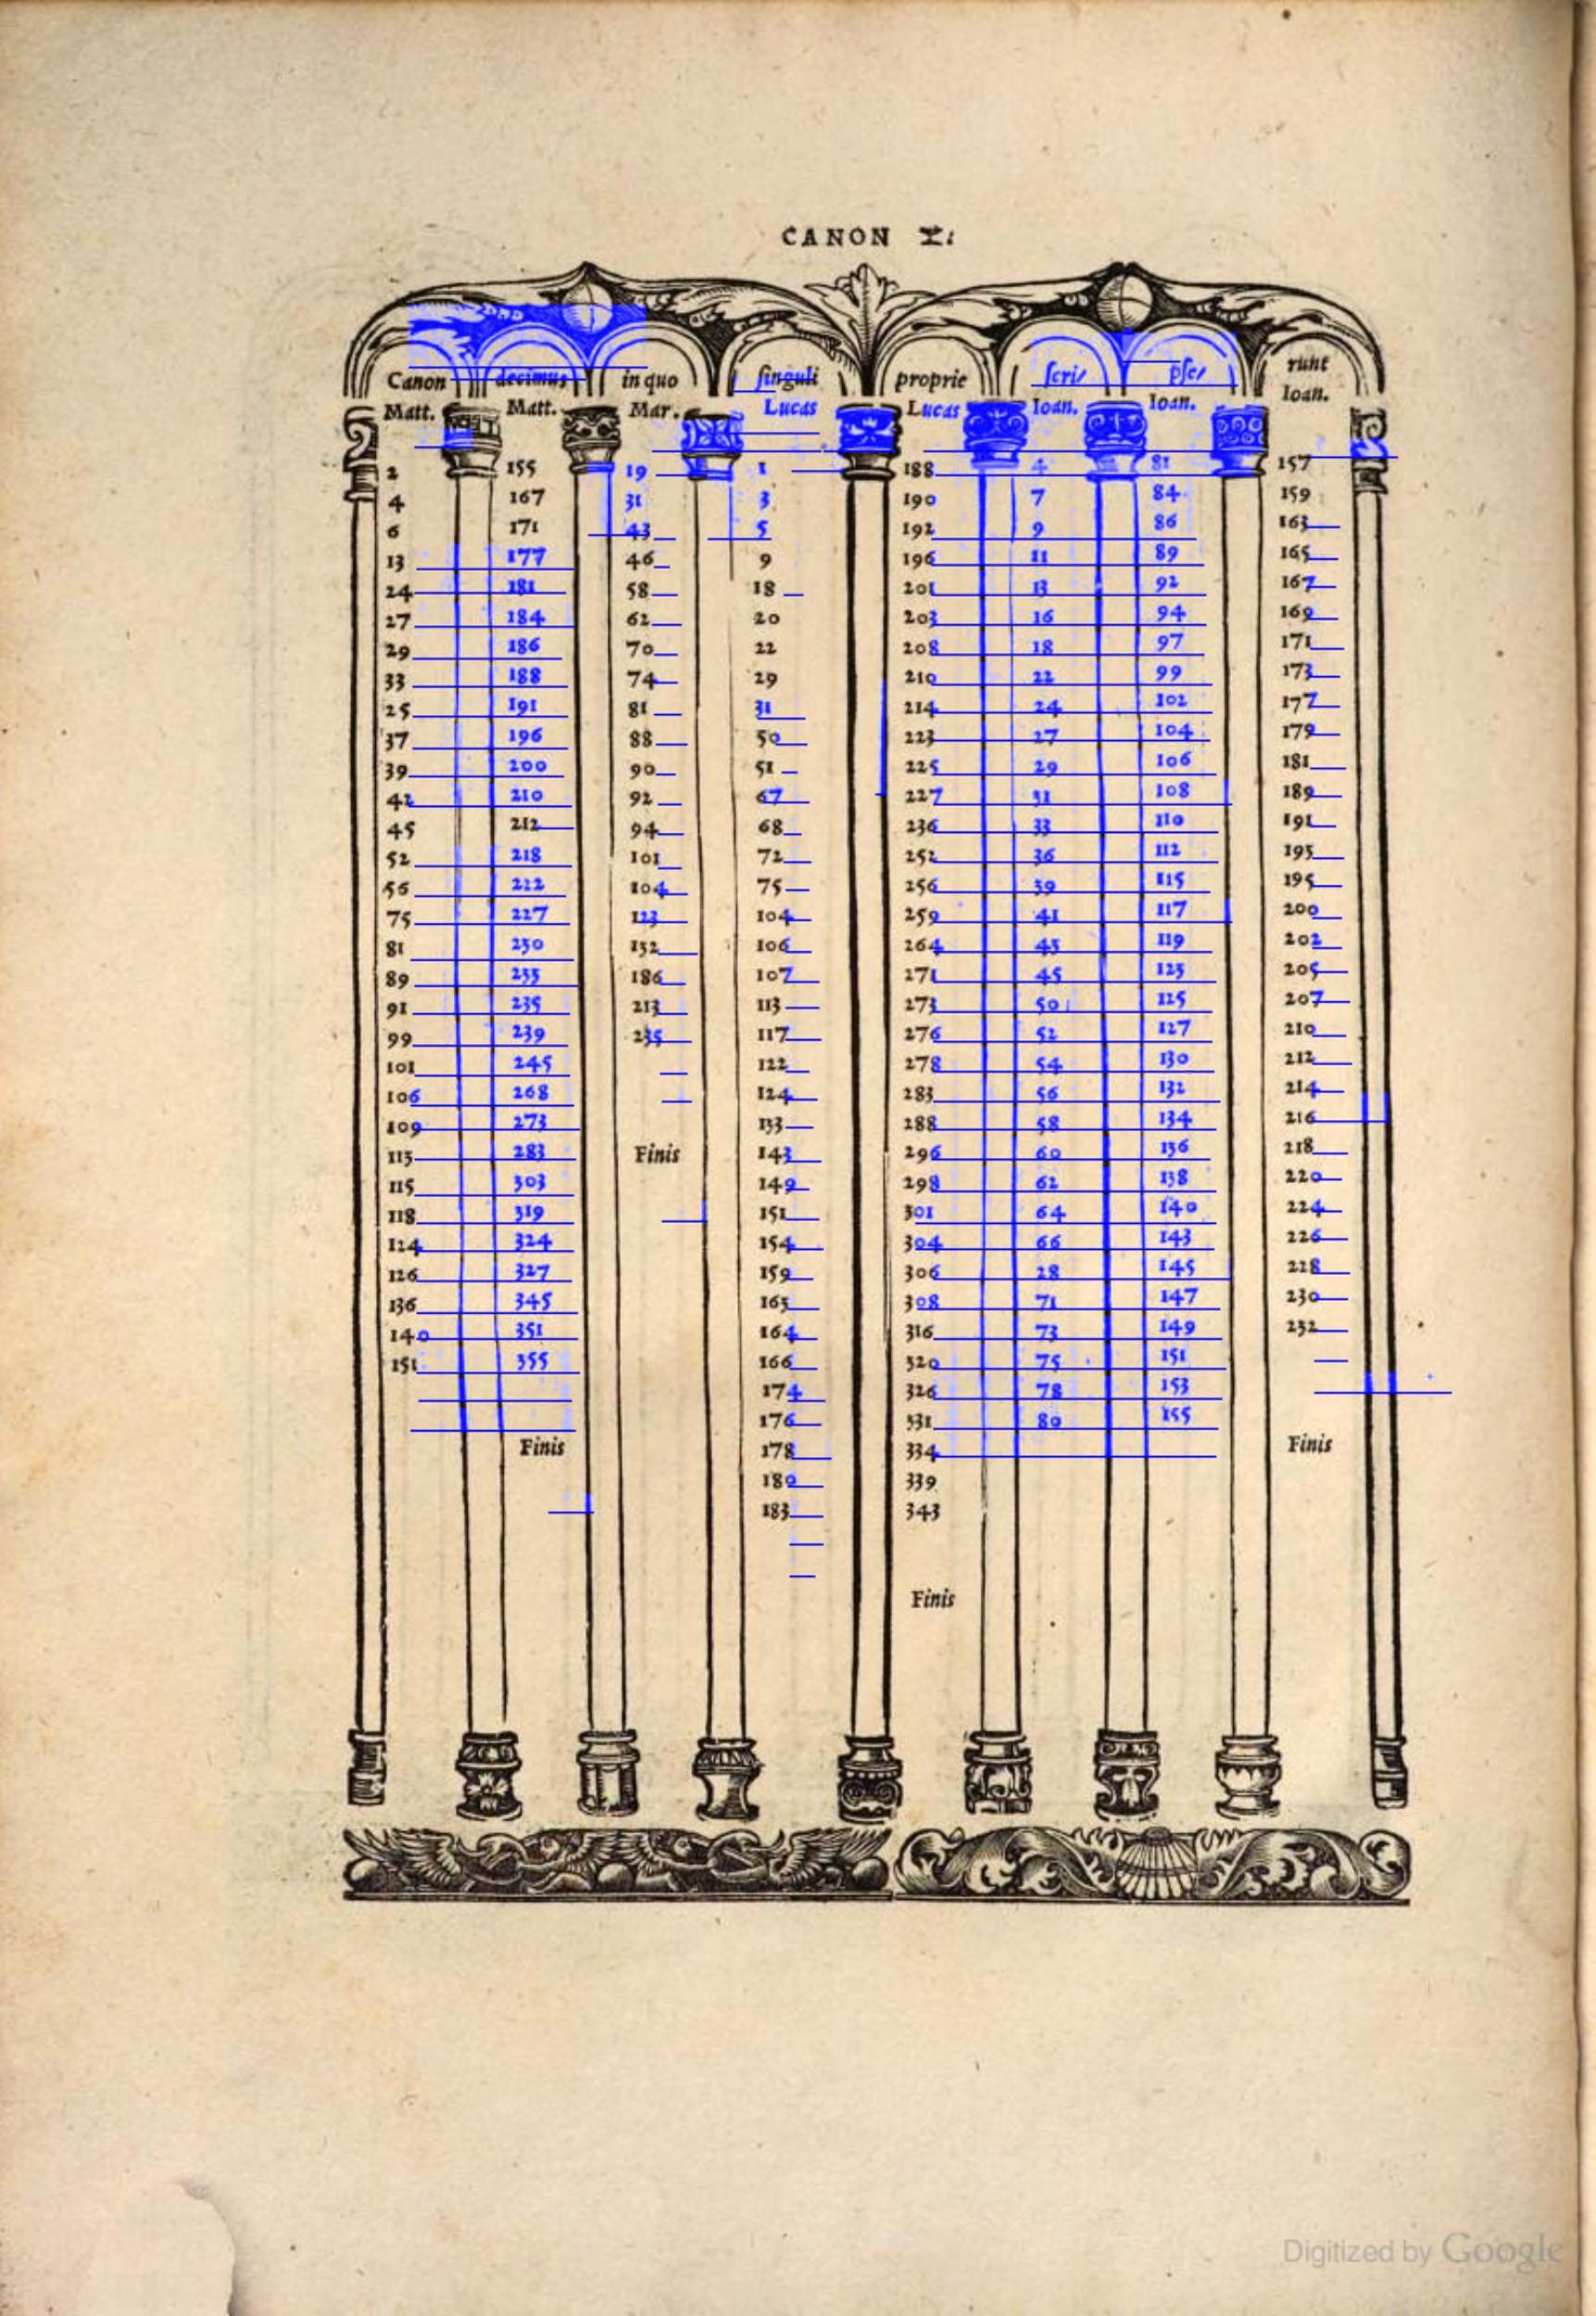 CANON X:
Canon decimus in quo singuli proprie scri/ pse/ runt
Matt. Matt. Mar. Lucas Lucas Ioan. Ioan. Ioan.
2 155 19 1 188 4 81 157
4 167 31 3 190 7 84 159
6 171 43 5 192 9 86 163
13 177 46 9 196 11 89 165
24 181 58 18 201 13 92 167
27 184 62 20 203 16 94 169
29 186 70 22 208 18 97 171
33 188 74 29 210 22 99 173
25 191 81 31 214 24 102 177
37 196 88 50 223 27 104 179
39 200 90 51 225 29 106 181
42 210 92 67 227 31 108 189
45 212 94 68 236 33 110 191
52 218 101 72 252 36 112 193
56 222 104 75 256 39 115 195
75 227 123 104 259 41 117 200
81 230 132 106 264 43 119 202
89 233 186 107 271 45 123 205
91 235 213 113 273 50 125 207
99 239 235 117 276 52 127 210
101 245 122 278 54 130 212
106 268 124 283 56 132 214
109 273 133 288 58 134 216
113 283 Finis 143 296 60 136 218
115 303 149 298 62 138 220
118 319 151 301 64 140 224
124 324 154 304 66 143 226
126 327 159 306 28 145 228
136 345 163 308 71 147 230
140 351 164 316 73 149 232
151 355 166 320 75 151
174 326 78 153
176 331 80 155
Finis 178 334 Finis
180 339
183 343
Finis
Digitized by Google